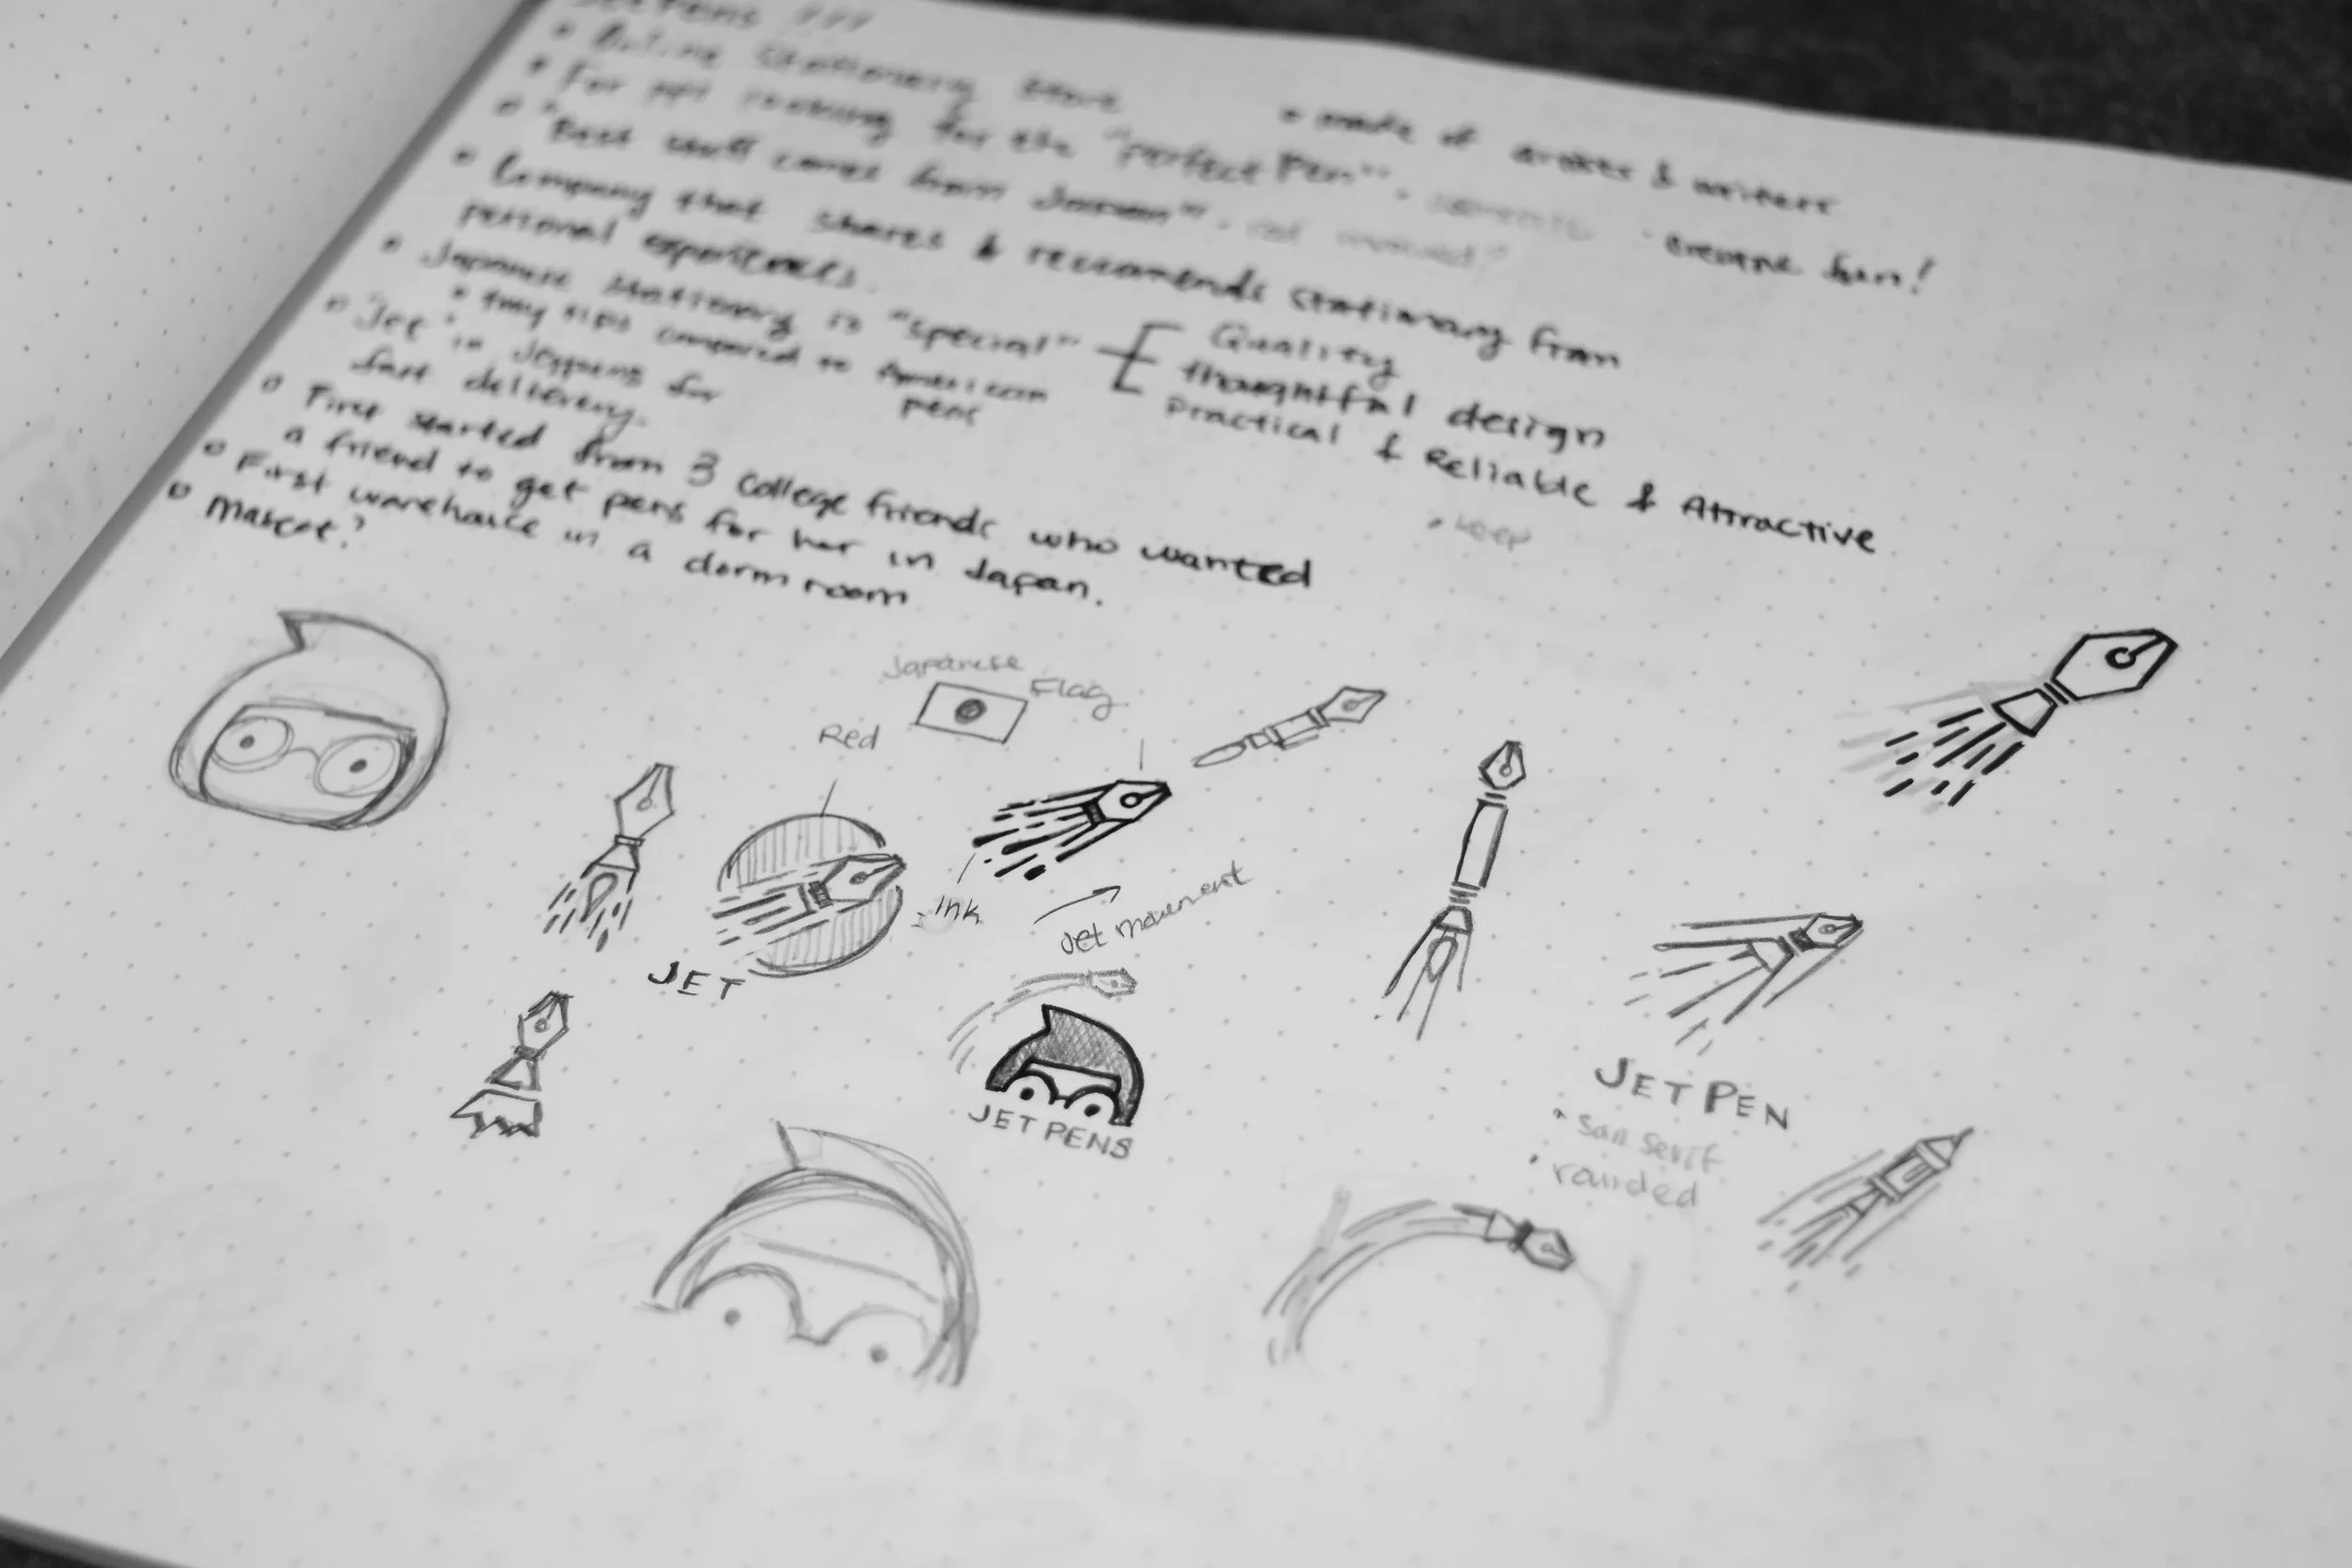 JetPens !!!
• Online Stationery Store
• For ppl looking for the "perfect Pen".
• "Best stuff comes from Japan".
• Company that shares & recommends stationary from
personal experiences.
• made of artists & writers
creative fun!
• Japanese stationary is "special"
Quality
thoughtful design
Practical & Reliable & Attractive
• tiny tips compared to American
pens
• "Jet" in Jetpens for
fast delivery.
• First started from 3 college friends who wanted
a friend to get pens for her in Japan.
• First warehouse in a dorm room
• Mascot?
• keep
Japanese
Flag
Red
Ink
Jet movement
JET
JET PENS
JET PEN
• San serif
• rounded